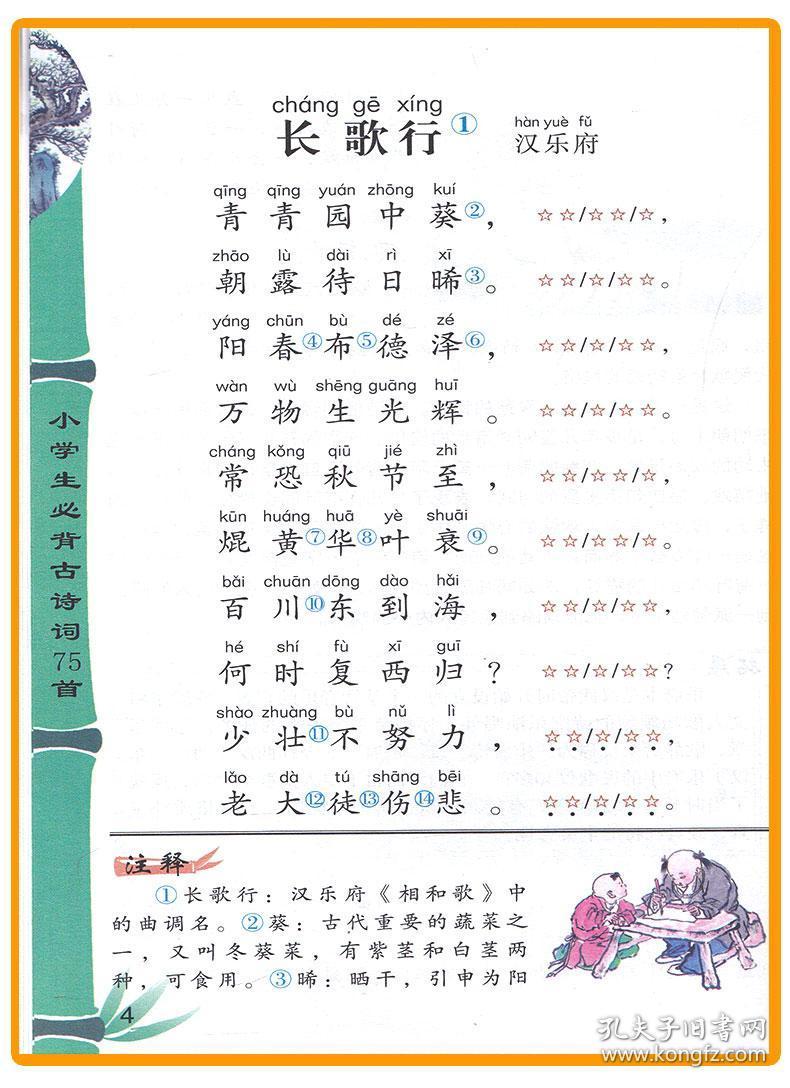 cháng gē xíng
长歌行①
hàn yuè fǔ
汉乐府
qīng qīng yuán zhōng kuí
青青园中葵②，☆☆/☆☆/☆，
zhāo lù dài rì xī
朝露待日晞③。☆☆/☆/☆☆。
yáng chūn bù dé zé
阳春④布⑤德泽⑥，☆☆/☆/☆☆，
wàn wù shēng guāng huī
万物生光辉。☆☆/☆/☆☆。
cháng kǒng qiū jié zhì
常恐秋节至，☆☆/☆☆/☆，
kūn huáng huā yè shuāi
焜黄⑦华⑧叶衰⑨。☆☆/☆☆/☆。
bǎi chuān dōng dào hǎi
百川⑩东到海，☆☆/☆/☆☆，
hé shí fù xī guī
何时复西归？☆☆/☆/☆☆？
shào zhuàng bù nǔ lì
少壮⑪不努力，☆☆/☆/☆☆，
lǎo dà tú shāng bēi
老大⑫徒⑬伤⑭悲。☆☆/☆/☆☆。
注释
①长歌行：汉乐府《相和歌》中
的曲调名。②葵：古代重要的蔬菜之
一，又叫冬葵菜，有紫茎和白茎两
种，可食用。③晞：晒干，引申为阳
小学生必背古诗词75首
4
孔夫子旧书网
www.kongfz.com